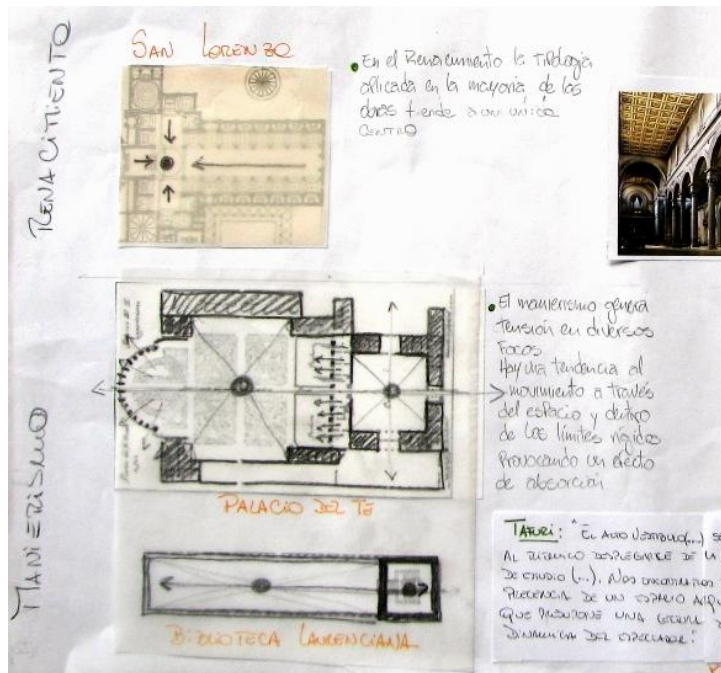 RENACIMIENTO
SAN LORENZO
En el Renacimiento la Tipología
aplicada en la mayoria de las
obras tiende a un único
CENTRO
MANIERISMO
El manierismo genera
Tensión en diversos
Focos
Hay una tendencia al
movimiento a través
del espacio y dentro
de los límites rígidos
Provocando un efecto
de absorción
PALACIO DEL TÉ
BIBLIOTECA LAURENCIANA
TAFURI: "EL ALTO VESTIBULO (...) SE
AL RITMICO DESPLEGARSE DE LA
DE ESTUDIO (...). NOS ENCONTRAMOS
PRESENCIA DE UN ESPACIO
QUE PROPONE UNA
DINAMICA DEL ESPECTADOR."